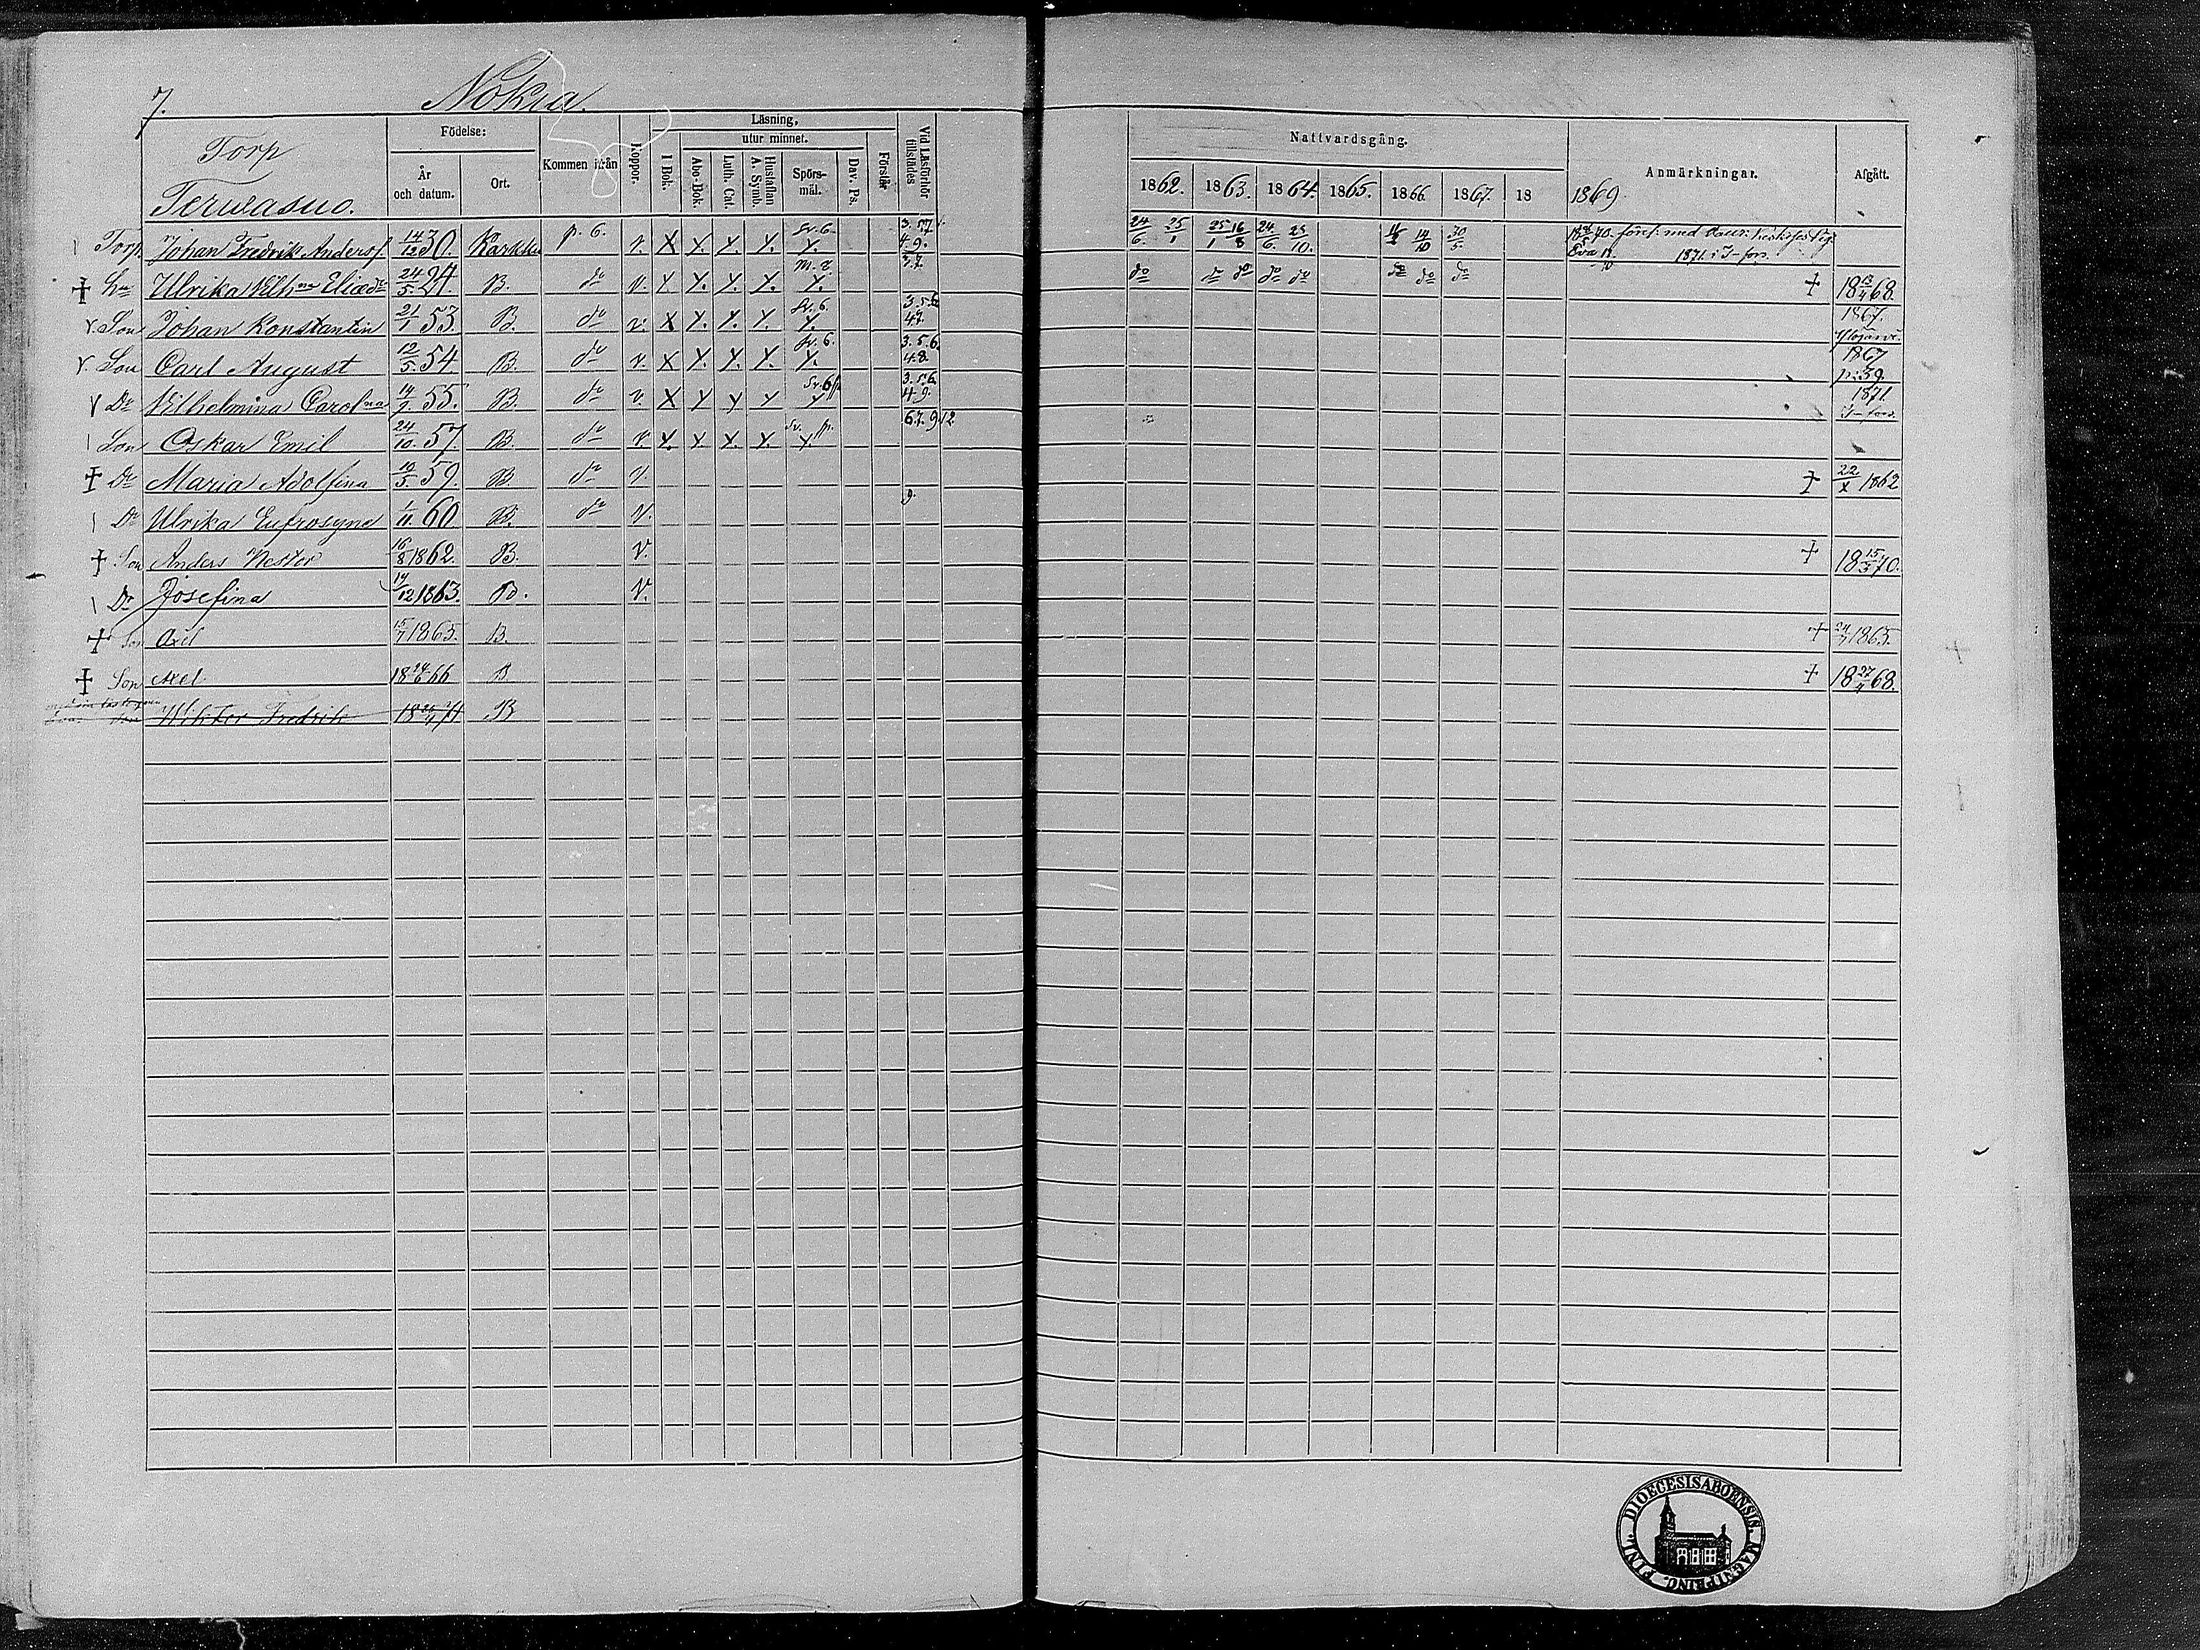 7. Nokia.
Torp
Terwasuo.
Födelse:
År och datum.
Ort.
Kommen ifrån
Koppor.
Läsning,
I Bok.
utur minnet.
Abc-Bok.
Luth. Cat.
Hustaflan A. Symb.
Spörsmål.
Dav. Ps.
Förstår
Vid Läsförhör tillstädes
Nattvardsgång.
1862. 1863. 1864. 1865. 1866 1867. 18
1869
Anmärkningar.
Afgått.
Torp. Johan Fredrik Anderss. 14/12 30. Karkku p. 6. v. X Y. Y. Y. Sv. 6. Y. 3. 5. 7 4. 9. 24/6. 25/1 25/1 16/8 24/6. 23/10. 14/10 30/5.
1871 i T-fors.
† Hu Ulrika Vilhna Eliæd. 24/5 24. B. do v. Y Y. Y. Y. Y. 3. 7. do do do do do do do do † 18 13/4 68.
v. Son Johan Konstantin 21/1 53. B. do v. X Y. Y. Y. Sv. 6. Y. 3. 5. 6. 4. 7. 1867. Ylöjärvi.
v. Son Carl August 12/5. 54. B. do v. X Y. Y. Y. Sv. 6. Y. 3. 5. 6. 4. 8. 1867 p. 39
v Dr Vilhelmina Carolna 14/9. 55. B. do v. X Y Y Y Sv. 6 Y 3. 5. 6. 4. 9. 1871 T-fors.
Son Oskar Emil 24/10. 57. B. do v. Y. Y. Y. Y. Sv. Y. 6. 7. 9. 12
† Dr Maria Adolfina 19/5 59. B do v. † 22/X 1862
Dr Ulrika Eufrosyne 1/11. 60 B. do V. 9.
† Son Anders Nestor 16/8 1862. B. V. † 18 15/3 70.
Dr Josefina 14/12 1863. B. V.
† Son Axel 15/7 1865. B. † 24/7 1865.
† Son Axel 18 24/6 66 B † 18 27/4 68.
Wiktor Fredrik 18 24/4 71 B
FINL. DIOECESIS ABOENSIS. MAGNI PRINC.